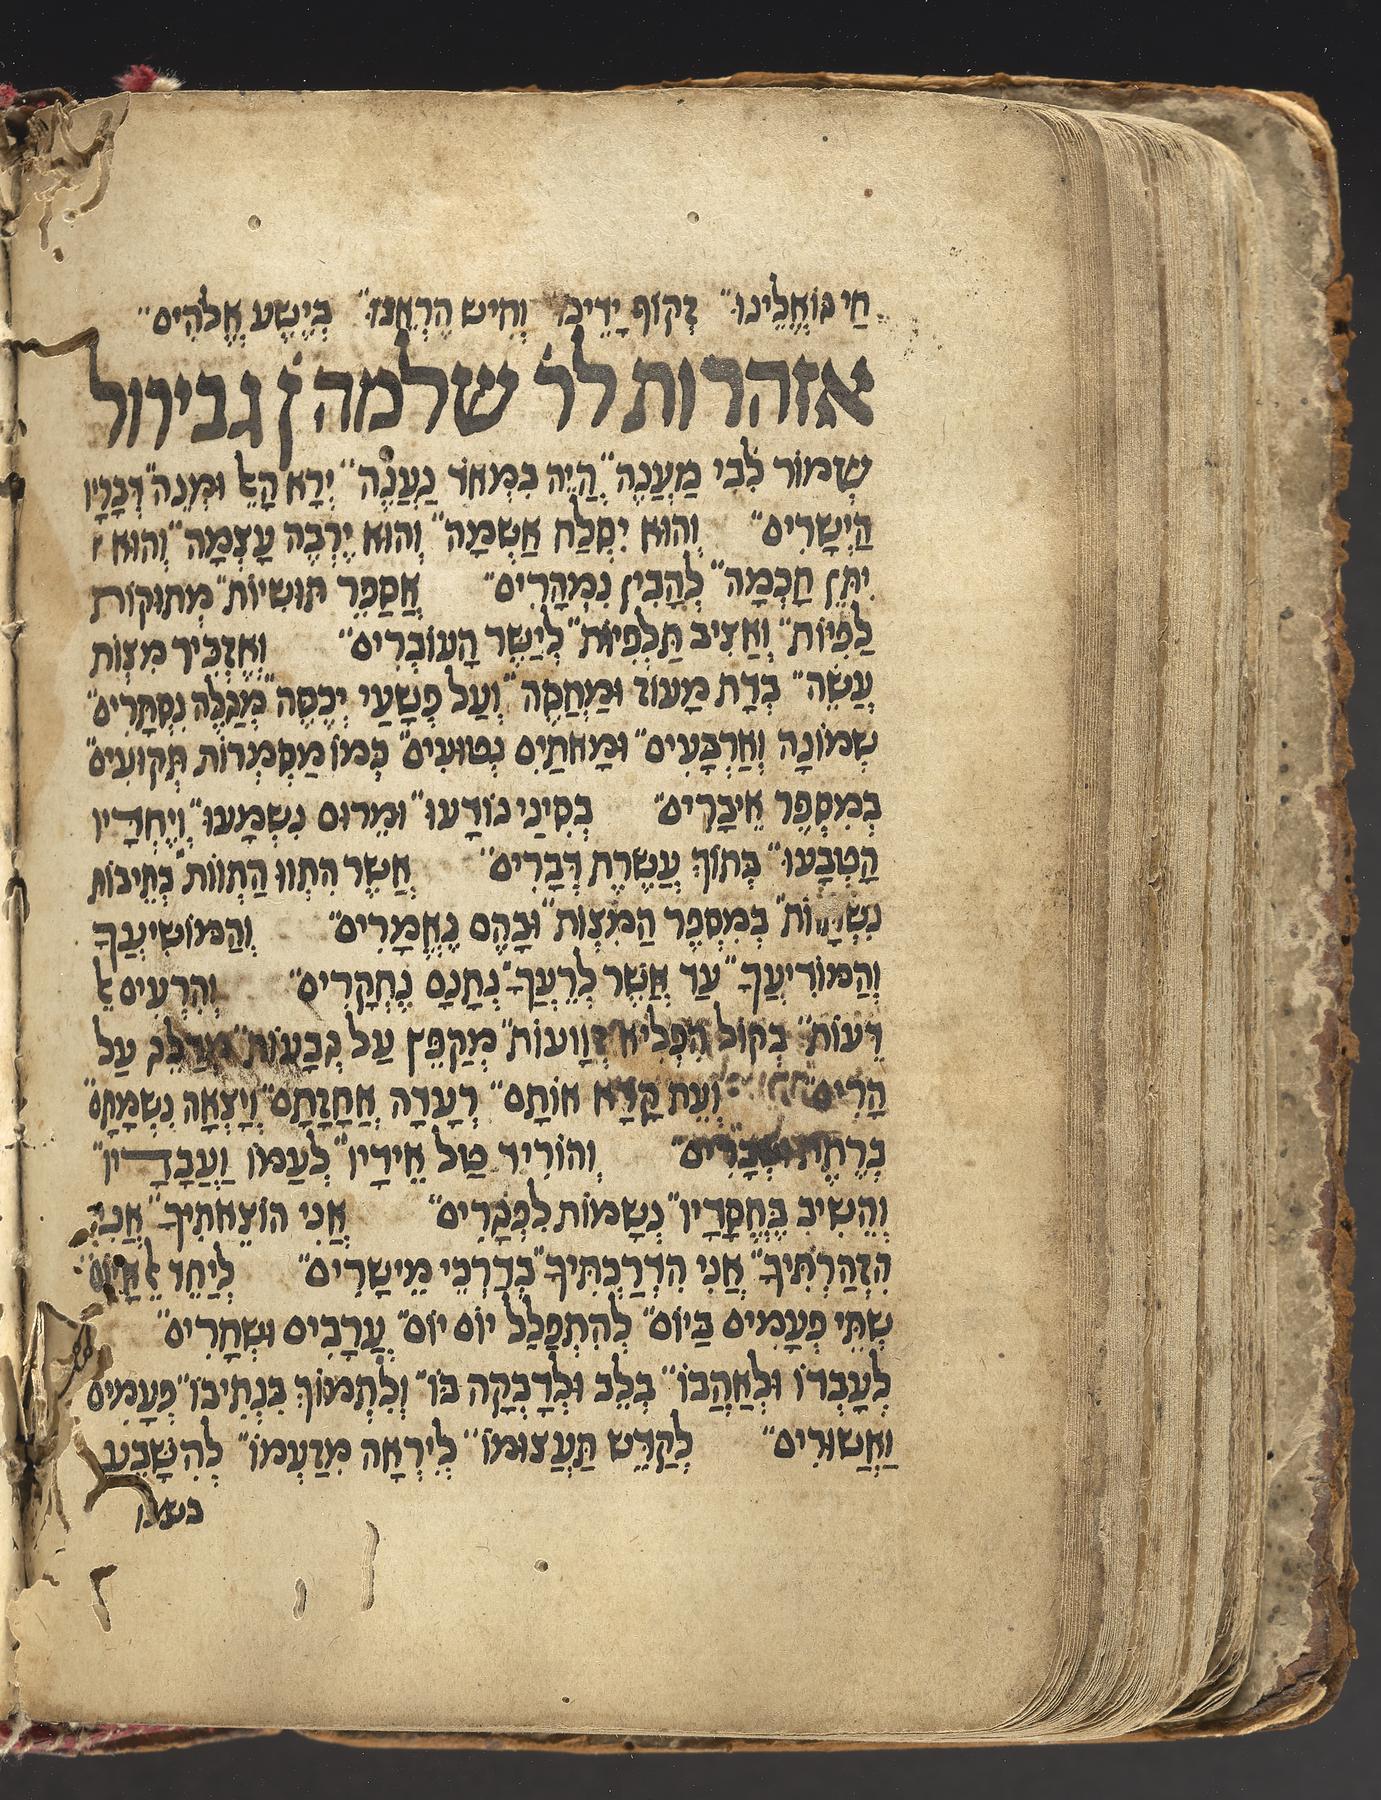 חַי גּוֹאֲלֵינוּ״ זְקוֹף יָדֵינוּ וְחִישׁ הֶרְאֵנוּ״ בְּיֵשַׁע אֱלֹהִים״
אזהרות לר שלמה ן גבירול
שְׁמוֹר לִבִּי מַעֲנֶה״ הֱיֵה בִּמְאֹד נַעֲנֶה״ יְרָא הָאֵל וּמְנֵה״ דְּבָרָיו
הַיְשָׁרִים״ וְהוּא יִסְלַח אַשְׁמָה״ וְהוּא יֶרְבֶּה עָצְמָה״ וְהוּא
יִתֵּן חָכְמָה״ לְהָבִין נִמְהָרִים״ אֲסַפֵּר תּוּשִׁיּוֹת״ מְתוּקוֹת
לַפִּיּוֹת״ וְאַצִּיב תַּלְפִּיּוֹת״ לְיַשֵּׁר הָעוֹבְרִים״ וְאֶזְכִּיר מִצְוֹת
עֲשֵׂה״ כְּדָת מָעוֹז וּמַחְסֶה״ וְעַל פְּשָׁעַי יְכַסֶּה״ מְגַלֶּה נִסְתָּרִים״
שְׁמוֹנָה וְאַרְבָּעִים״ וּמָאתַיִם נְטוּעִים״ כְּמוֹ מַסְמְרוֹת תְּקוּעִים״
בְּמִסְפַּר אֵיבָרִים״ בְּסִינַי נוֹדָעוּ״ וּמֵרוֹם נִשְׁמָעוּ״ וְיַחְדָּיו
הָטְבָּעוּ״ בְּתוֹךְ עֲשֶׂרֶת דְּבָרִים״ אֲשֶׁר הִתְווּ הַתְווֹת״ כְּתִיבוֹת
בְּמִסְפַּר הַמִּצְוֹת״ וּבָהֶם נֶאֱמָרִים״ וְהַמּוֹשִׁיעֲךָ
וְהַמּוֹדִיעֲךָ״ עַד אֲשֶׁר לְרֵעֲךָ״ נְתָנָם נֶחְקָרִים״ וְהִרְעִים
דֵּעוֹת״ בְּקוֹל הִפְלִיא זְוָועוֹת״ מְקַפֵּץ עַל גְּבָעוֹת״ מְדַלֵּג עַל
הָרִים״ וְעֵת קָרָא אוֹתָם״ רְעָדָה אֲחָזָתַם״ וְיָצְאָה נִשְׁמָתָם״
וְהוֹרִיד טַל אֵידָיו״ לְעַמּוֹ וַעֲבָדָיו״
וְהֵשִׁיב בַּחֲסָדָיו״ נְשָׁמוֹת לִפְגָרִים״ אֲנִי הוֹצֵאתִיךָ״ אֲנִי
הִזְהַרְתִּיךָ״ אֲנִי הִדְרַכְתִּיךָ״ בְּדַרְכֵי מֵישָׁרִים״ לְיַחֵד
שְׁתֵּי פְעָמִים בַּיּוֹם״ לְהִתְפַּלֵּל יוֹם יוֹם״ עֲרָבִים וּשְׁחָרִים״
לְעָבְדוֹ וּלְאַהֲבוֹ״ בְּלֵב וּלְדָבְקָה בּוֹ״ וְלִתְמוֹךְ בִּנְתִיבוֹ״ פְּעָמִים
וַאֲשׁוּרִים״ לְקַדֵּשׁ תַּעֲצוּמוֹ״ לְיִרְאָה מִזַּעְמוֹ״ לְהִשָּׁבֵעַ